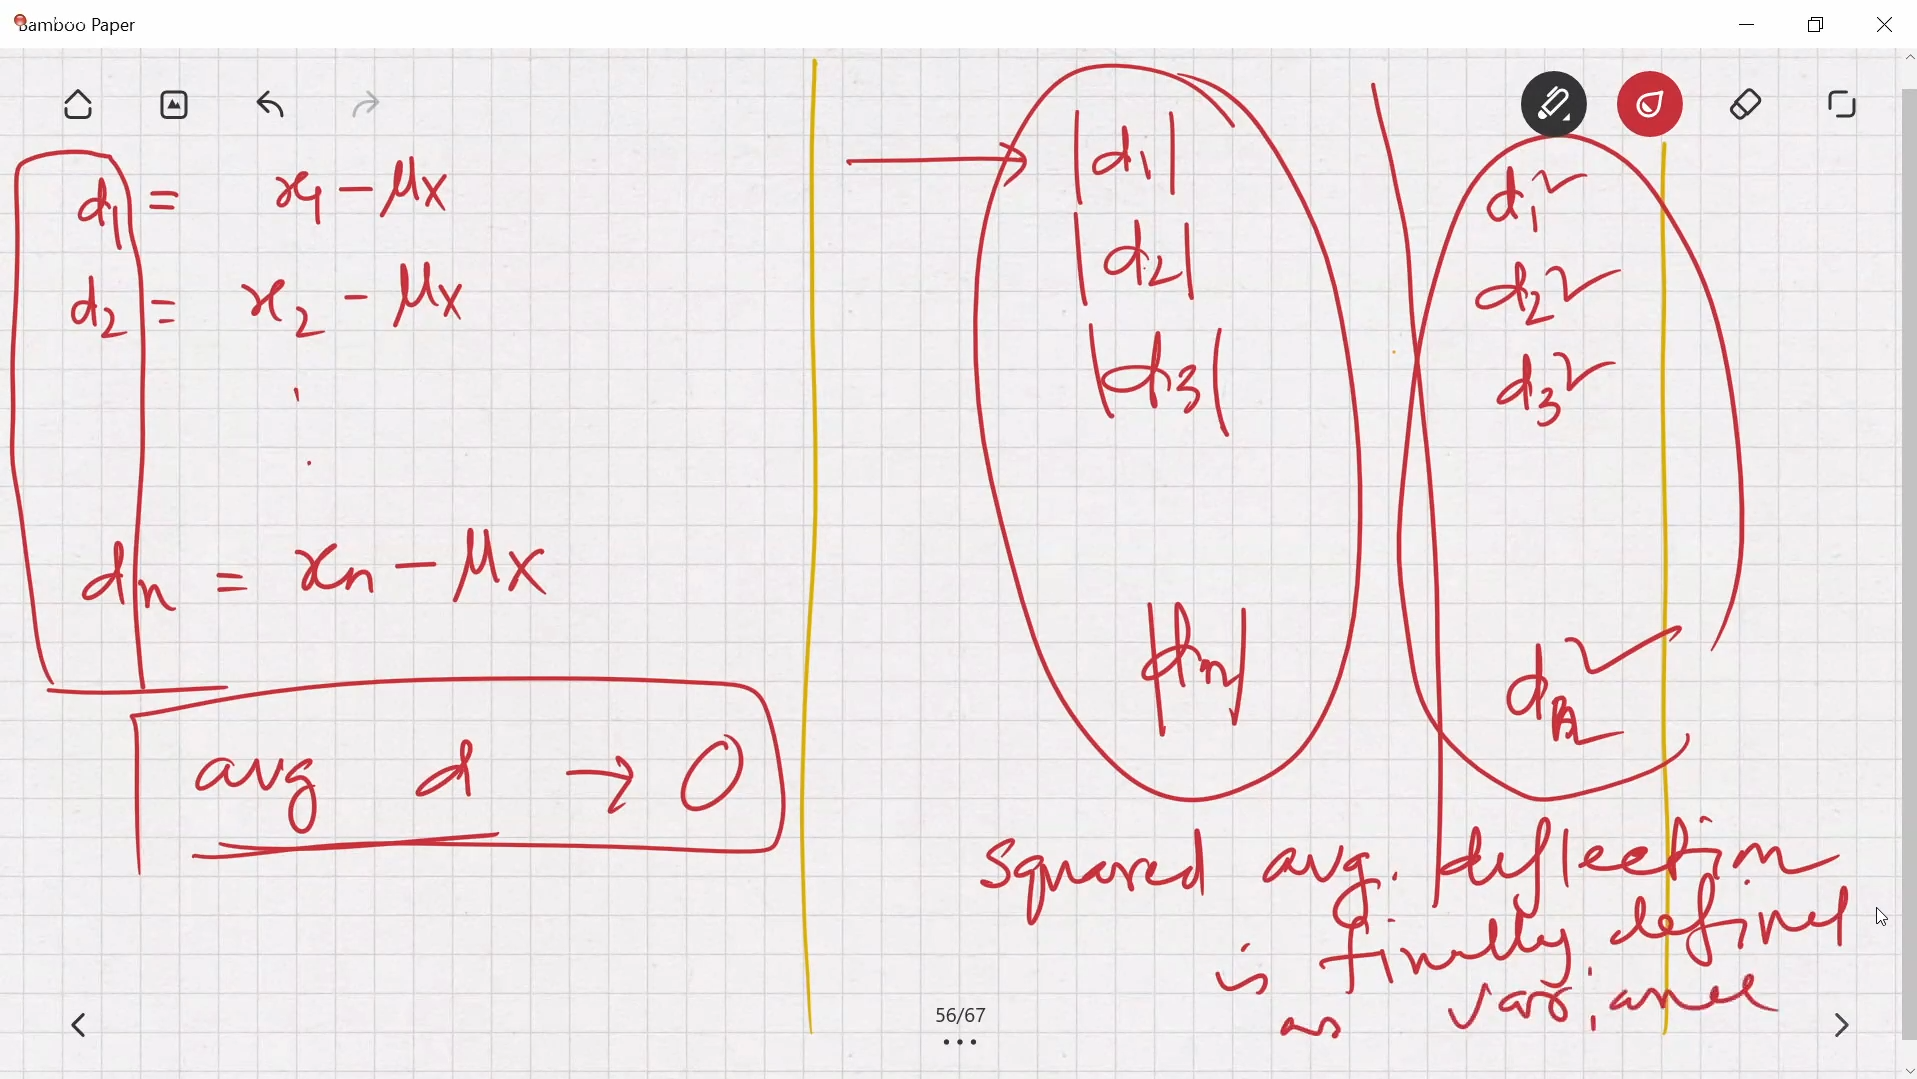 Bamboo Paper
d₁ = x₁ − μx
d₂ = x₂ − μx
.
.
dn = xn − μx
avg d → 0
|d₁|
|d₂|
|d₃|
|dn|
d₁²
d₂²
d₃²
squared avg. deflection
is finally defined
as variance
56/67